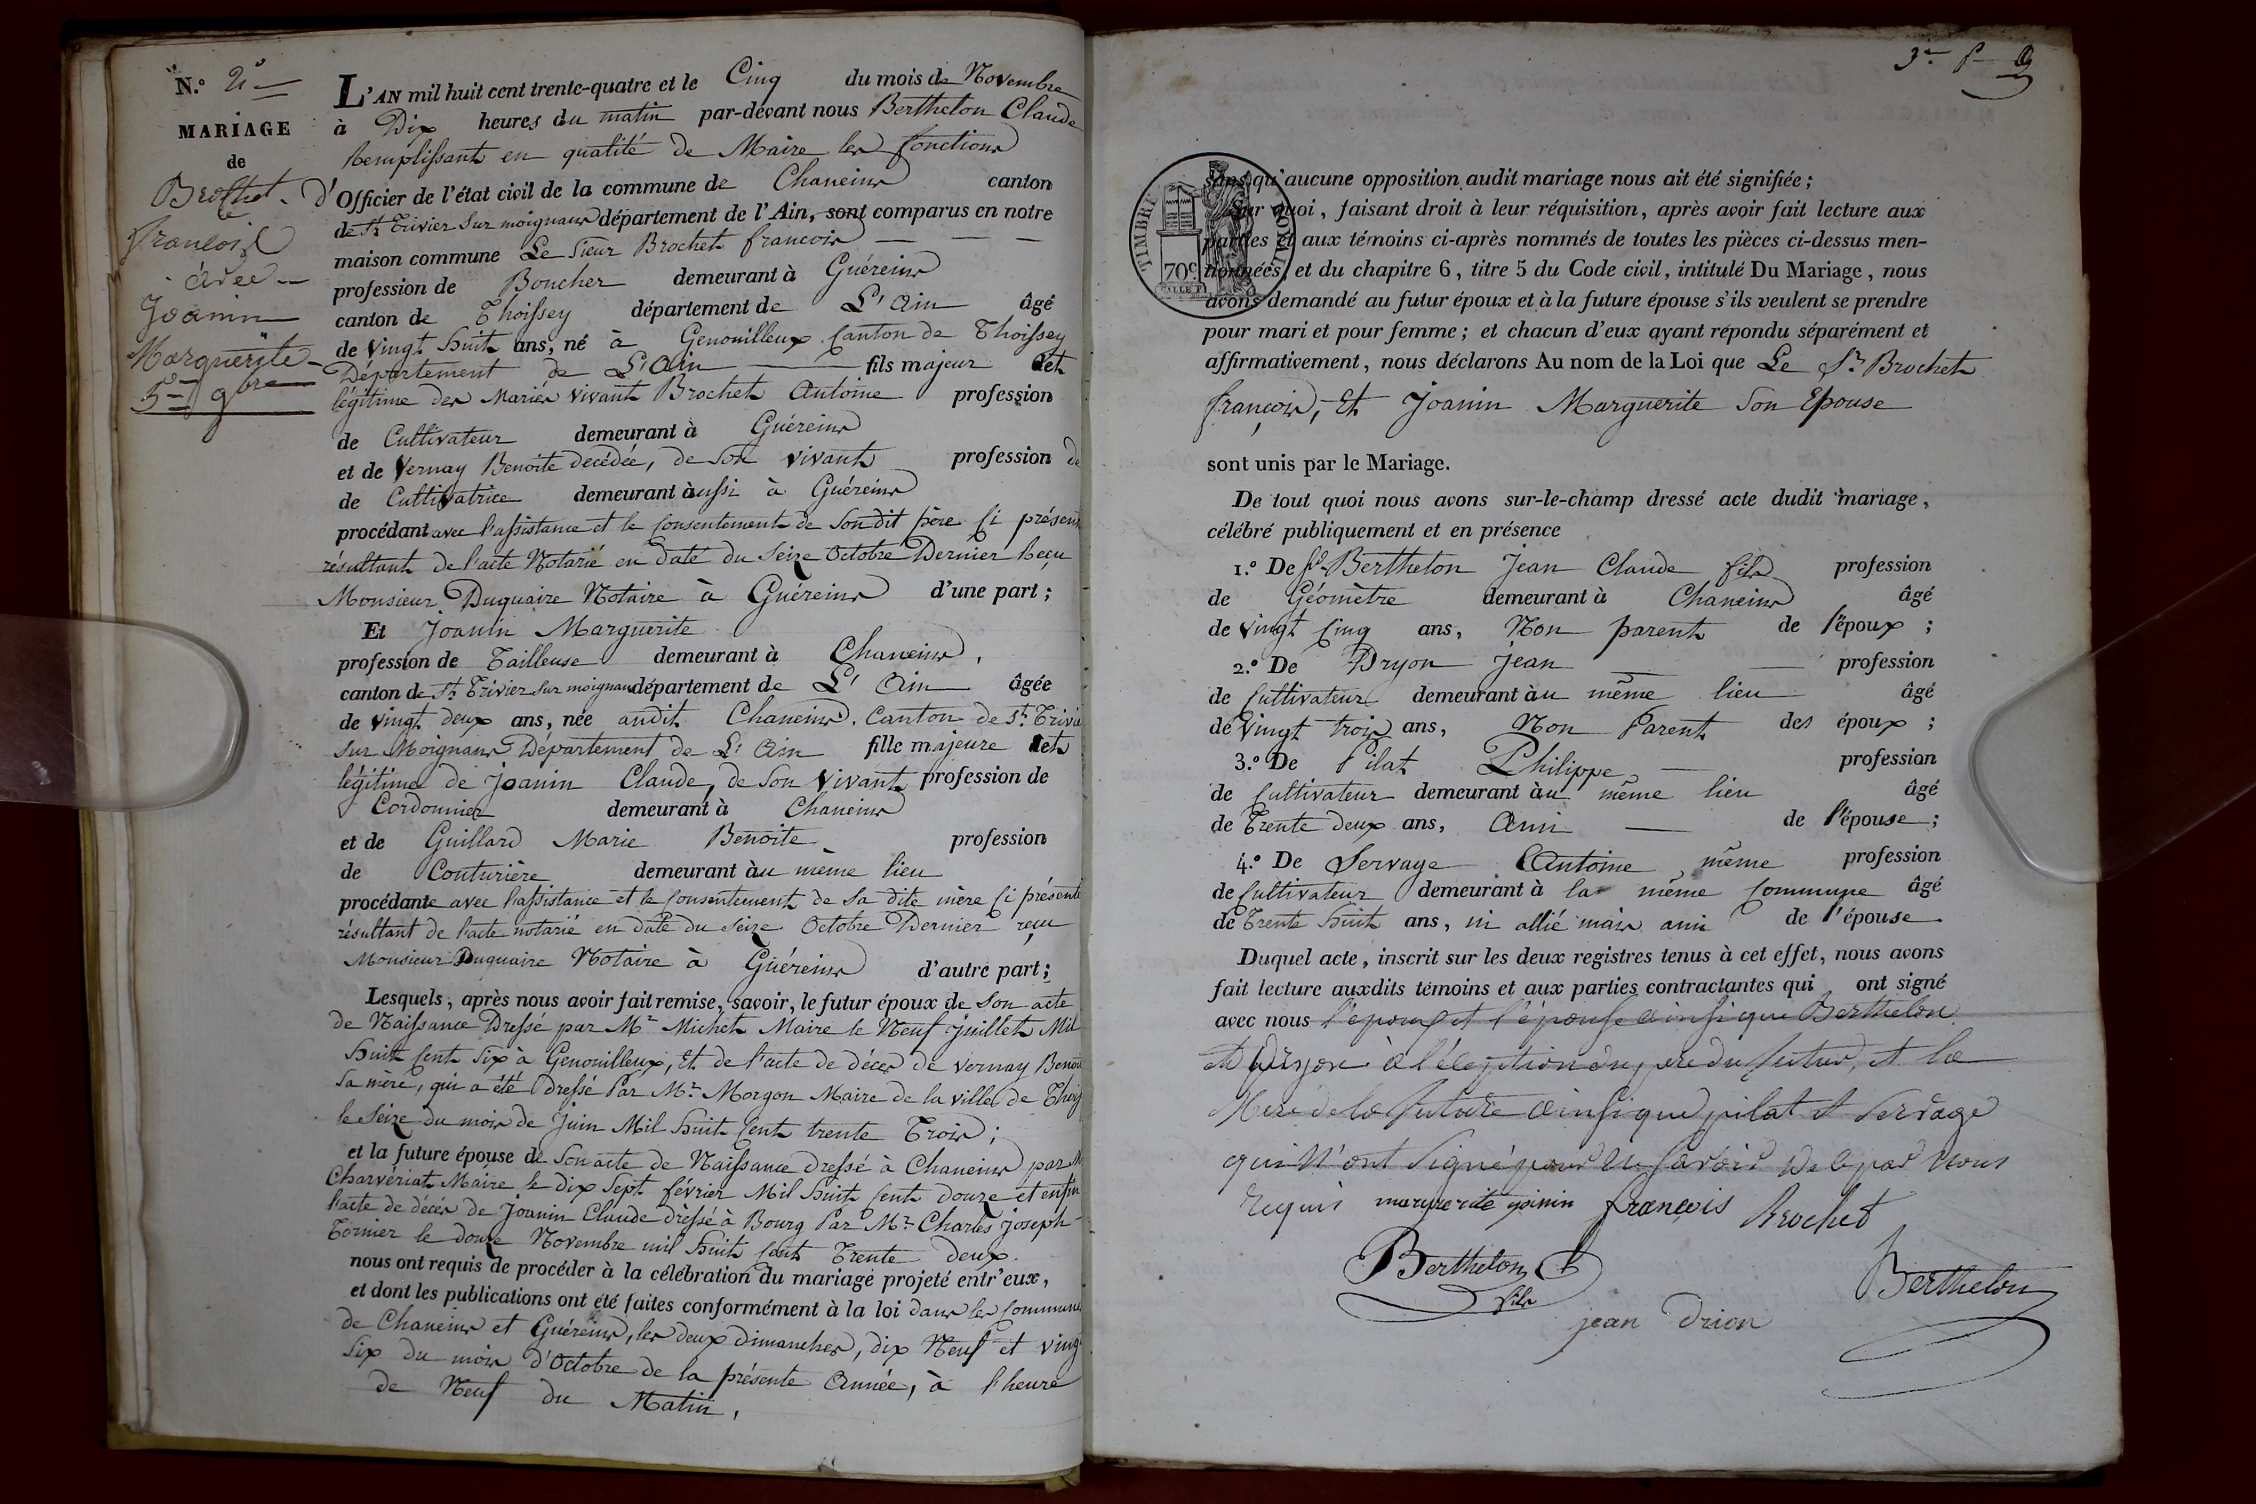 N.º 2º
MARIAGE
de
Brochet
françois
avec
Joanin
Marguerite
5 9bre
L'AN mil huit cent trente-quatre et le Cinq du mois de Novembre
à Dix heures du matin par-devant nous Berthelon Claude
Remplissant en qualité de Maire les fonctions
d'Officier de l'état civil de la commune de Chaneins canton
de St Trivier sur moignans département de l'Ain, sont comparus en notre
maison commune Le Sieur Brochet françois
profession de Boucher demeurant à Guéreins
canton de Thoissey département de L'Ain âgé
de vingt huit ans, né à Genouilleux Canton de Thoissey
Département de L'Ain fils majeur et
légitime des Mariés vivant Brochet Antoine profession
de Cultivateur demeurant à Guéreins
et de Vernay Benoite decédée, de Son vivant profession de
de Cultivatrice demeurant aussi à Guéreins
procédant avec l'assistance et le Consentement de Son dit père Ci présent
résultant de l'acte Notarié en date du Seize Octobre Dernier Reçu
Monsieur Duquaire Notaire à Guéreins d'une part ;
Et Joanin Marguerite
profession de Tailleuse demeurant à Chaneins,
canton de St Trivier sur moignans département de L'Ain âgée
de vingt deux ans, née audit Chaneins, Canton de St Trivier
sur Moignans Département de L'Ain fille majeure et
légitime de Joanin Claude, de Son Vivant profession de
Cordonnier demeurant à Chaneins
et de Guillard Marie Benoite profession
de Couturière demeurant au même lieu
procédante avec l'assistance et le Consentement de Sa dite mère Ci présente
résultant de l'acte notarié en date du Seize Octobre Dernier reçu
Monsieur Duquaire Notaire à Guéreins d'autre part ;
Lesquels, après nous avoir fait remise, savoir, le futur époux de Son acte
de Naissance Dressé par Mr Michet Maire le Neuf Juillet Mil
huit Cent Six à Genouilleux, Et de l'acte de décès de Vernay Benoite
Sa mère, qui a été Dressé Par Mr Morgon Maire de la ville de Thoissey
le Seize du mois de Juin Mil huit Cent trente Trois ;
et la future épouse de Son acte de Naissance dressé à Chaneins par Mr
Charvériat Maire le dix Sept février Mil huit Cent douze et enfin
l'acte de décès de Joanin Claude dressé à Bourg Par Mr Charles Joseph
Tornier le douze Novembre mil huit Cent Trente deux.
nous ont requis de procéder à la célébration du mariage projeté entr'eux,
et dont les publications ont été faites conformément à la loi dans les Communes
de Chaneins et Guéreins, les deux dimanches, dix Neuf et vingt
Six du mois d'Octobre de la présente Année, à l'heure
de Neuf du Matin,
TIMBRE ROYAL
70c
sans qu'aucune opposition audit mariage nous ait été signifiée ;
Sur quoi, faisant droit à leur réquisition, après avoir fait lecture aux
parties et aux témoins ci-après nommés de toutes les pièces ci-dessus men-
tionnées, et du chapitre 6, titre 5 du Code civil, intitulé Du Mariage, nous
avons demandé au futur époux et à la future épouse s'ils veulent se prendre
pour mari et pour femme ; et chacun d'eux ayant répondu séparément et
affirmativement, nous déclarons Au nom de la Loi que Le Sr Brochet
françois, Et Joanin Marguerite Son Epouse
sont unis par le Mariage.
De tout quoi nous avons sur-le-champ dressé acte dudit mariage,
célébré publiquement et en présence
1.º De Sr Berthelon Jean Claude fils profession
de Géomètre demeurant à Chaneins âgé
de vingt Cinq ans, Non parent de l'époux ;
2.º De Dryon Jean profession
de Cultivateur demeurant au même lieu âgé
de vingt trois ans, Non Parent des époux ;
3.º De Pilat Philippe profession
de Cultivateur demeurant au même lieu âgé
de Trente deux ans, Ami de l'épouse ;
4.º De Servage Antoine même profession
de Cultivateur demeurant à la même Commune âgé
de Trente huit ans, ni allié mais ami de l'épouse
Duquel acte, inscrit sur les deux registres tenus à cet effet, nous avons
fait lecture auxdits témoins et aux parties contractantes qui ont signé
avec nous l'epoux et l'épouse ainsi que Berthelon
et Dryon à l'éléception du pere du futur, et la
Mere de la future ainsi que pilat et Servage
qui N'ont Signé pour Ne Savoir de le par Nous
requis marguerite goinin françois Brochet
Berthelon fils
Berthelon
jean drion